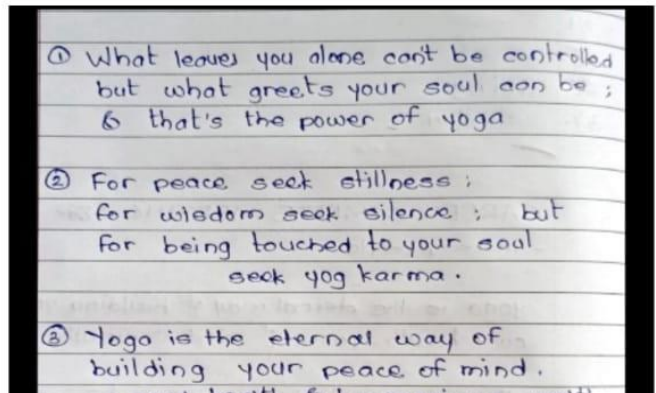 ① What leaves you alone can't be controlled
but what greets your soul can be ;
& that's the power of yoga
② For peace seek stillness ;
for wisdom seek silence ; but
for being touched to your soul
seek yog karma .
③ Yoga is the eternal way of
building your peace of mind .